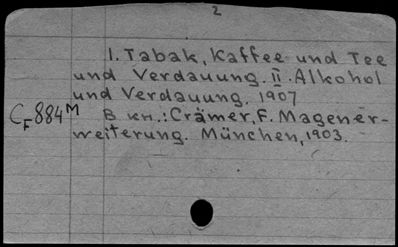 2
I. Tabak, Kaffee und Tee
und Verdauung. II. Alkohol
und Verdauung. 1907
CF884M В кн.: Crämer, F. Magener-
weiterung. München, 1903.